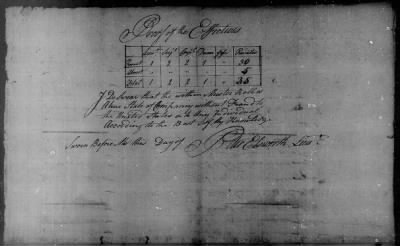 Proof of the Effectives
Lieut. Serjt Corpl Drum fife Privates
Present 1 2 2 1 30
Absent 5
Total 1 2 2 1 35
I Do Swear that the within Muster Roll is
A true State of Company without Fraud to
the United States or to Any Individual
According to the Best of my Knowledge
Sworn Before Me this Day of
Elsworth Lieut